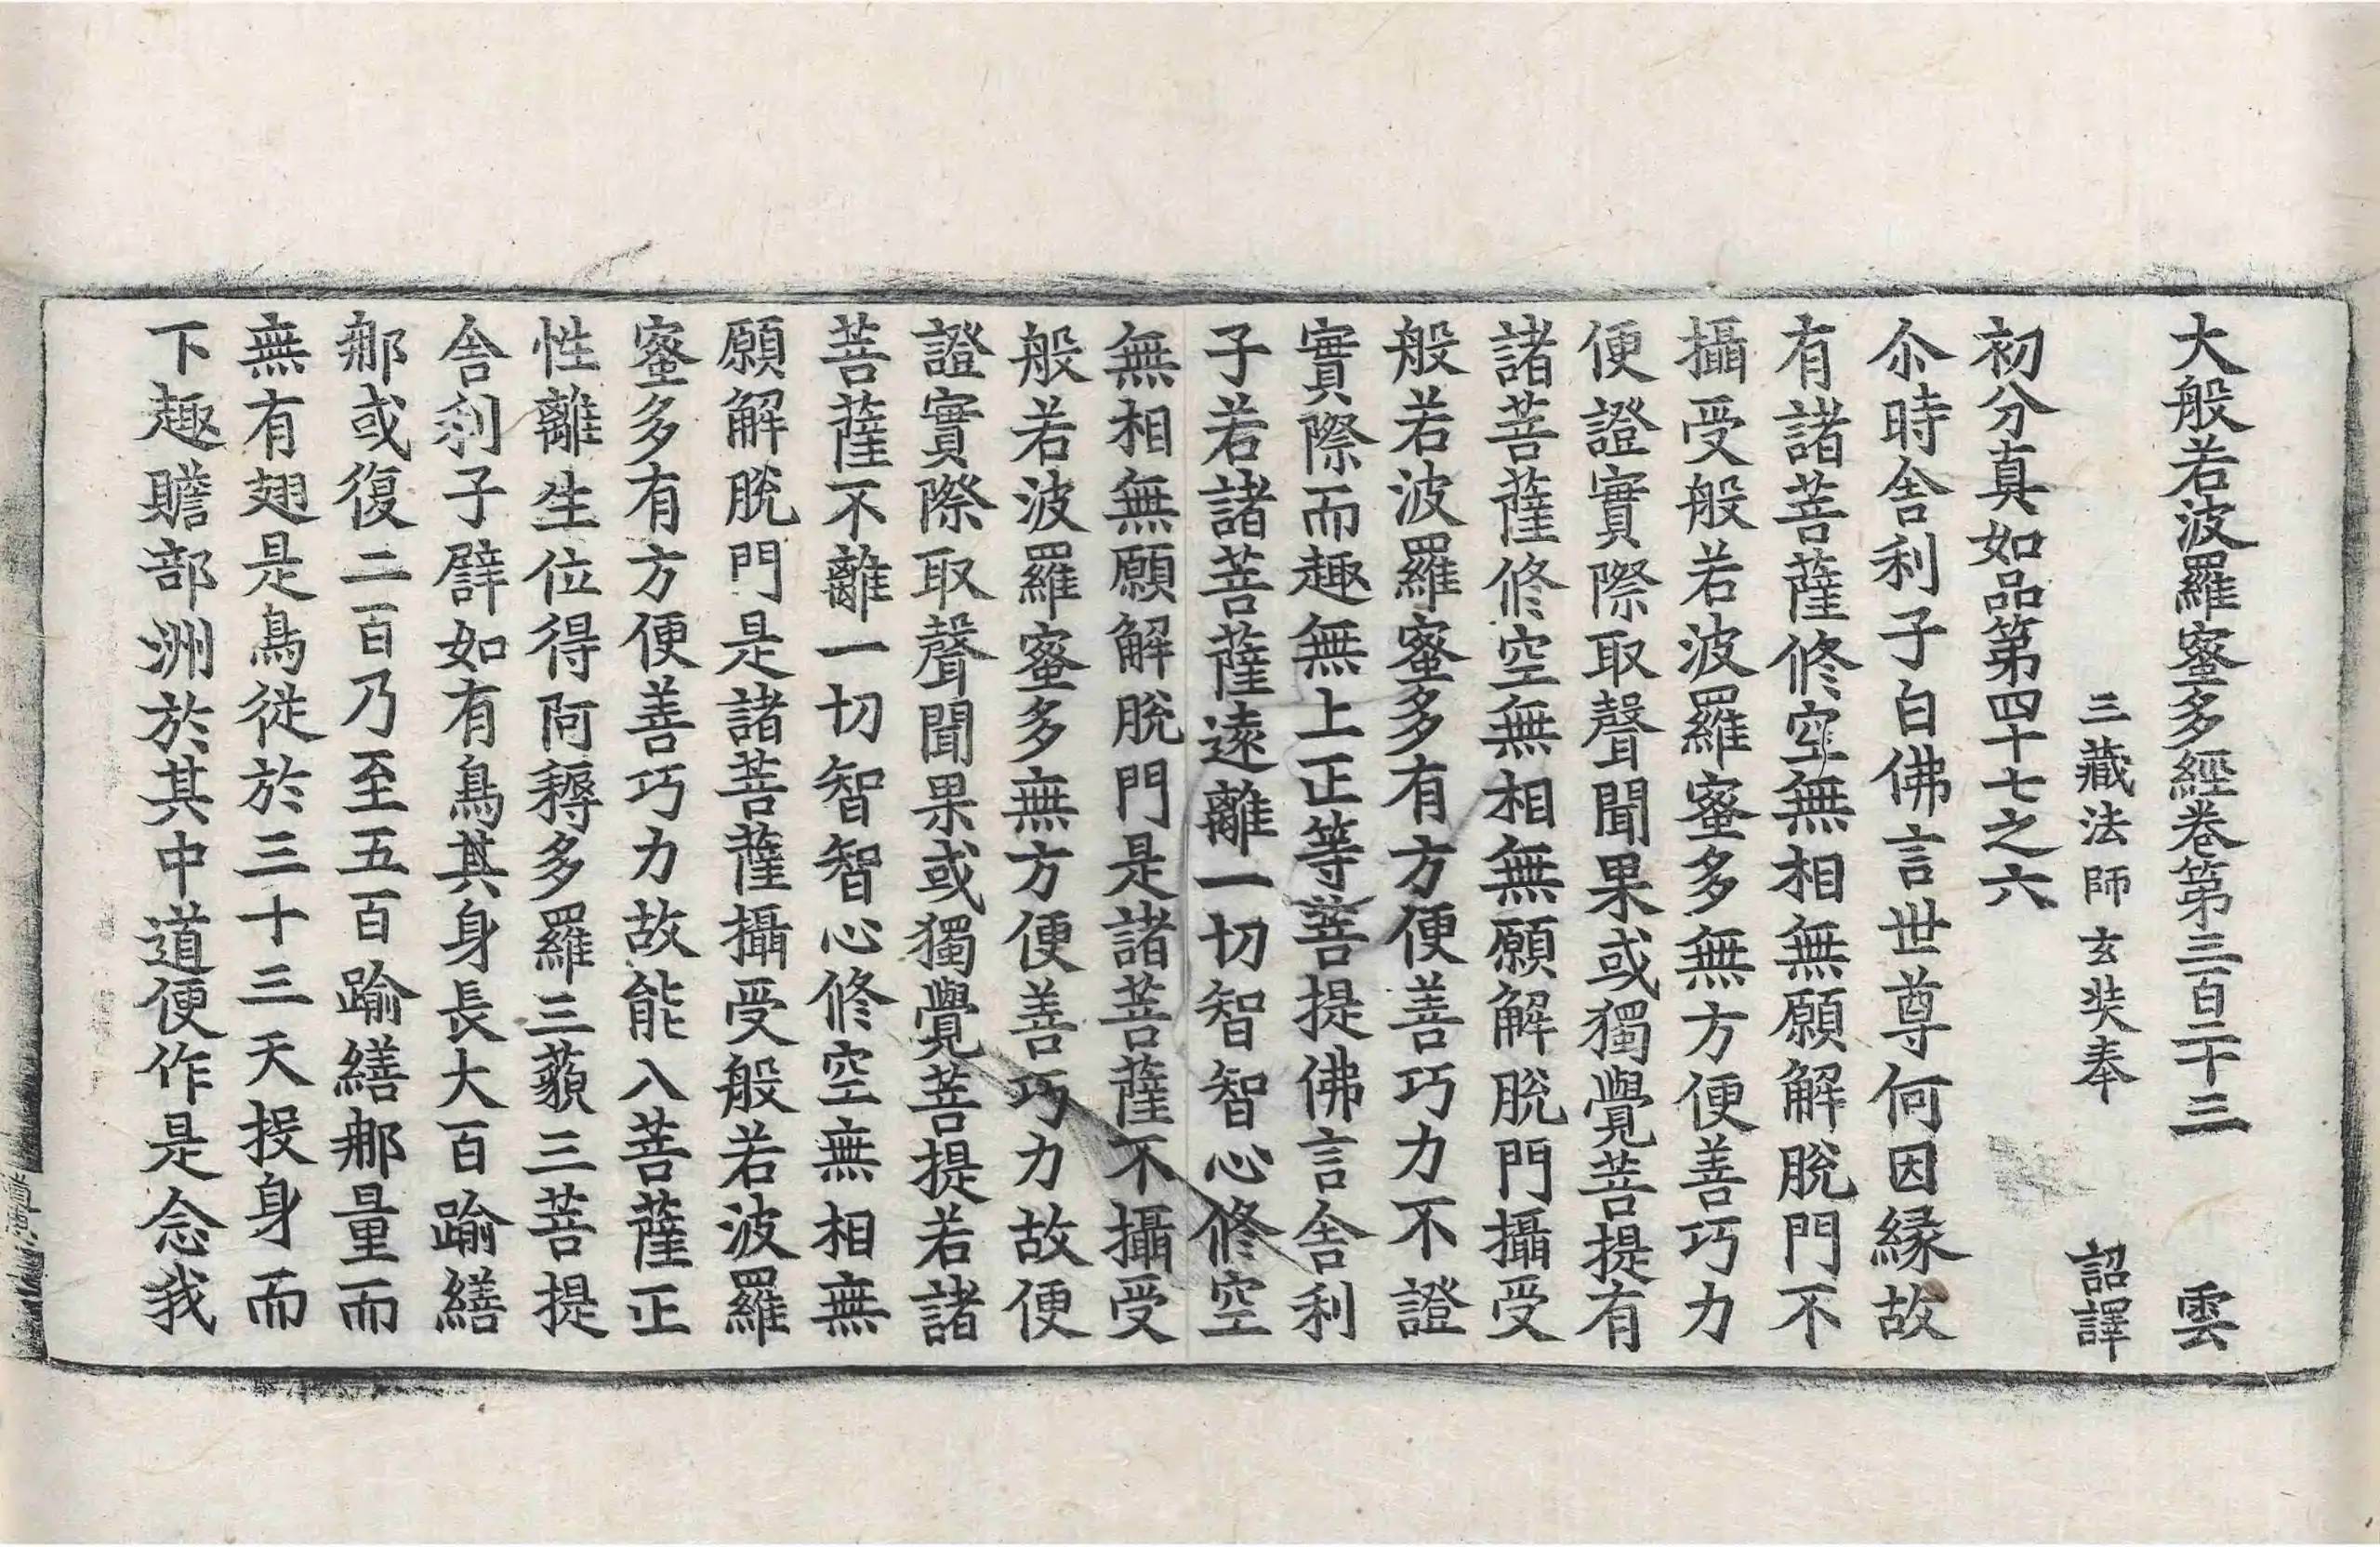 大般若波羅蜜多經卷第三百二十三 雲
三藏法師玄奘奉 詔譯
初分真如品第四十七之六
尒時舍利子白佛言世尊何因緣故
有諸菩薩修空無相無願解脫門不
攝受般若波羅蜜多無方便善巧力
便證實際取聲聞果或獨覺菩提有
諸菩薩修空無相無願解脫門攝受
般若波羅蜜多有方便善巧力不證
實際而趣無上正等菩提佛言舍利
子若諸菩薩遠離一切智智心修空
無相無願解脫門是諸菩薩不攝受
般若波羅蜜多無方便善巧力故便
證實際取聲聞果或獨覺菩提若諸
菩薩不離一切智智心修空無相無
願解脫門是諸菩薩攝受般若波羅
蜜多有方便善巧力故能入菩薩正
性離生位得阿耨多羅三藐三菩提
舍利子譬如有鳥其身長大百踰繕
那或復二百乃至五百踰繕那量而
無有翅是鳥從於三十三天投身而
下趣贍部洲於其中道便作是念我